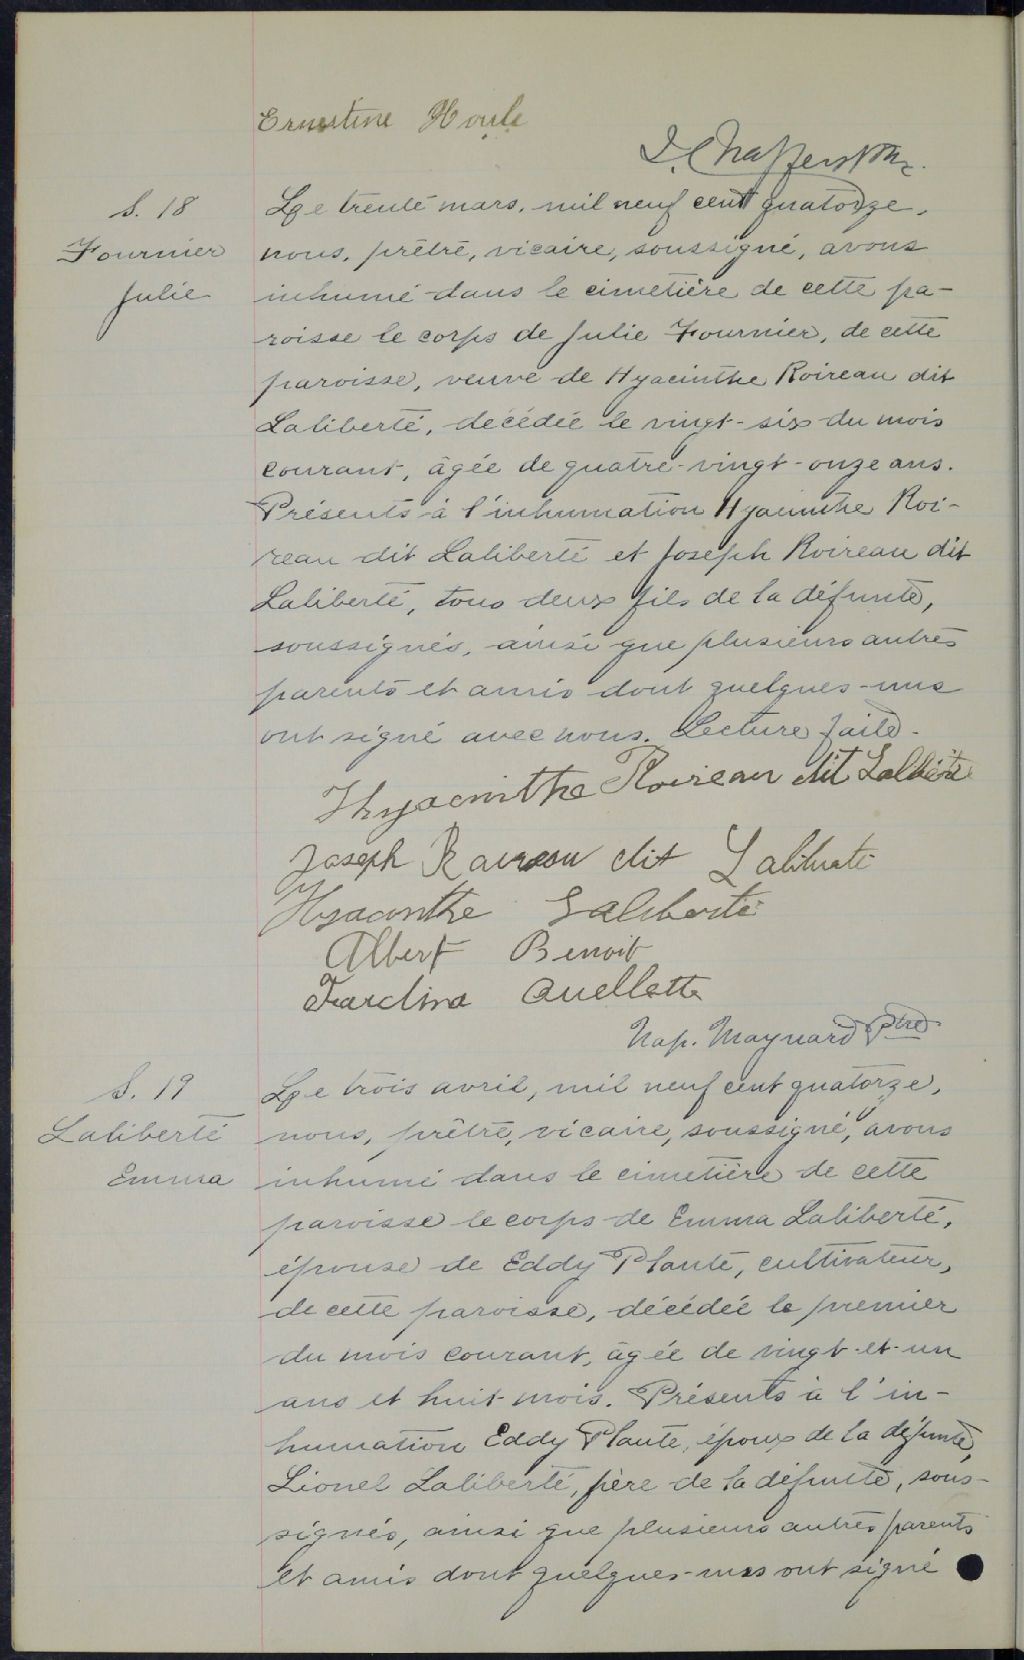 Ernestine Houle
S. 18
Fournier
Julie
Le trente mars, mil neuf cent quatorze,
nous, prêtre, vicaire, soussigné, avons
inhumé dans le cimetière de cette pa-
roisse le corps de Julie Fournier, de cette
paroisse, veuve de Hyacinthe Roireau dit
Laliberté, décédée le vingt-six du mois
courant, âgée de quatre-vingt-onze ans.
Présents à l'inhumation Hyacinthe Roi-
reau dit Laliberté et Joseph Roireau dit
Laliberté, tous deux fils de la défunte,
soussignés, ainsi que plusieurs autres
parents et amis dont quelques-uns
ont signé avec nous. Lecture faite.
Hyacinthe Roireau dit Laliberté
Joseph Raireau dit Laliberté
Hyacinthe Laliberté
Albert Benoit
Ouellette
Nap. Maynard Ptre
S. 19
Laliberté
Emma
Le trois avril, mil neuf cent quatorze,
nous, prêtre, vicaire, soussigné, avons
inhumé dans le cimetière de cette
paroisse le corps de Emma Laliberté,
épouse de Eddy Plante, cultivateur,
de cette paroisse, décédée le premier
du mois courant, âgée de vingt-et-un
ans et huit mois. Présents à l'in-
humation Eddy Plante, époux de la défunte,
Lionel Laliberté, père de la défunte, sous-
signés, ainsi que plusieurs autres parents
et amis dont quelques-uns ont signé